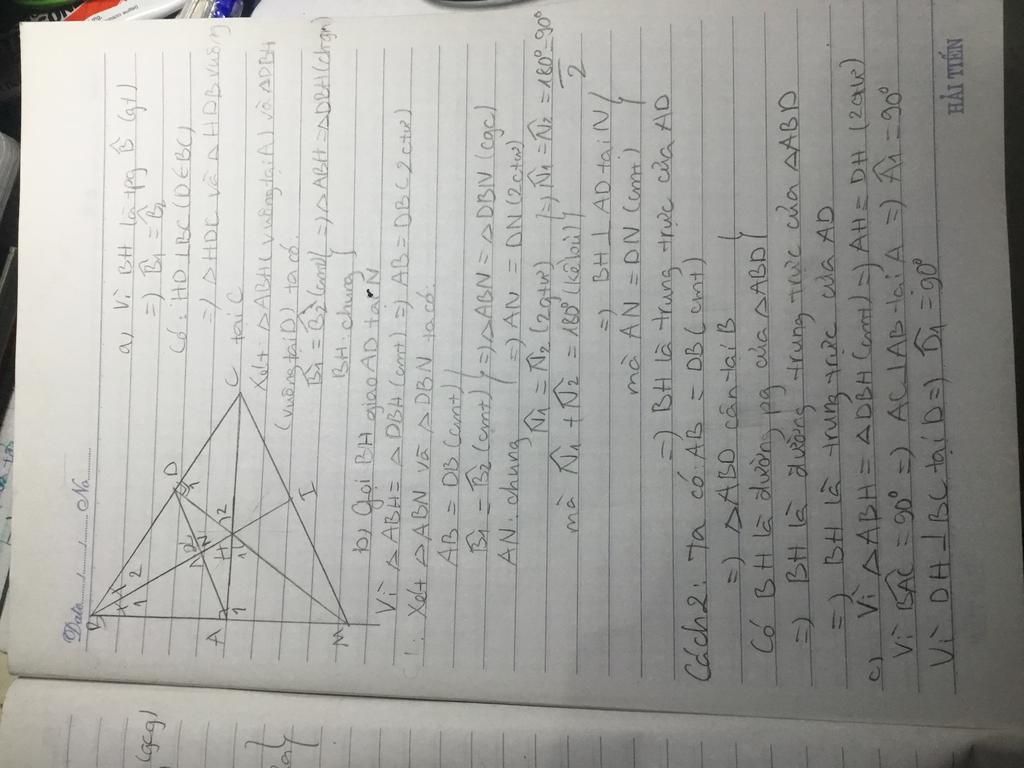 Date............No............
a) Vì BH là pg B̂ (gt)
=> B̂1 = B̂2
Có: HD ⊥ BC (D ∈ BC)
=> △HDC và △HDB vuông
tại C
Xét △ABH (vuông tại A) và △DBH
(vuông tại D) ta có
B̂1 = B̂2 (cmt) } => △ABH = △DBH (chgn)
BH: chung
b) Gọi BH giao AD tại N
Vì △ABH = △DBH (cmt) => AB = DB (2ctư)
Xét △ABN và △DBN ta có
AB = DB (cmt)
B̂1 = B̂2 (cmt) } => △ABN = △DBN (cgc)
AN: chung => AN = DN (2ctư)
N̂1 = N̂2 (2gtư)
mà N̂1 + N̂2 = 180° (kề bù) } => N̂1 = N̂2 = 180°/2 = 90°
=> BH ⊥ AD tại N }
mà AN = DN (cmt)
=> BH là trung trực của AD
Cách 2: Ta có: AB = DB (cmt)
=> △ABD cân tại B
Có BH là đường pg của △ABD }
=> BH là đường trung trực của △ABD
=> BH là trung trực của AD
c) Vì △ABH = △DBH (cmt) => AH = DH (2ctư)
Vì BAC = 90° => AC ⊥ AB tại A => Â1 = 90°
Vì DH ⊥ BC tại D => D̂1 = 90°
HẢI TIẾN
B
1
2
D
1
A
1
N
H
1
2
C
I
M
(cgc)